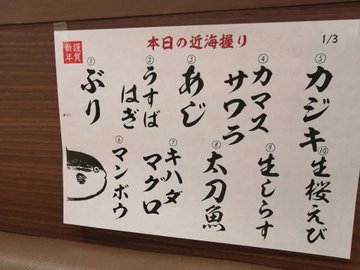 謹賀
新年
本日の近海握り
1/3
①ぶり
②うすば
はぎ
③あじ
④カマス
サワラ
⑤カジキ
⑥マンボウ
⑦キハダ
マグロ
⑧太刀魚
⑨生しらす
⑩生桜えび